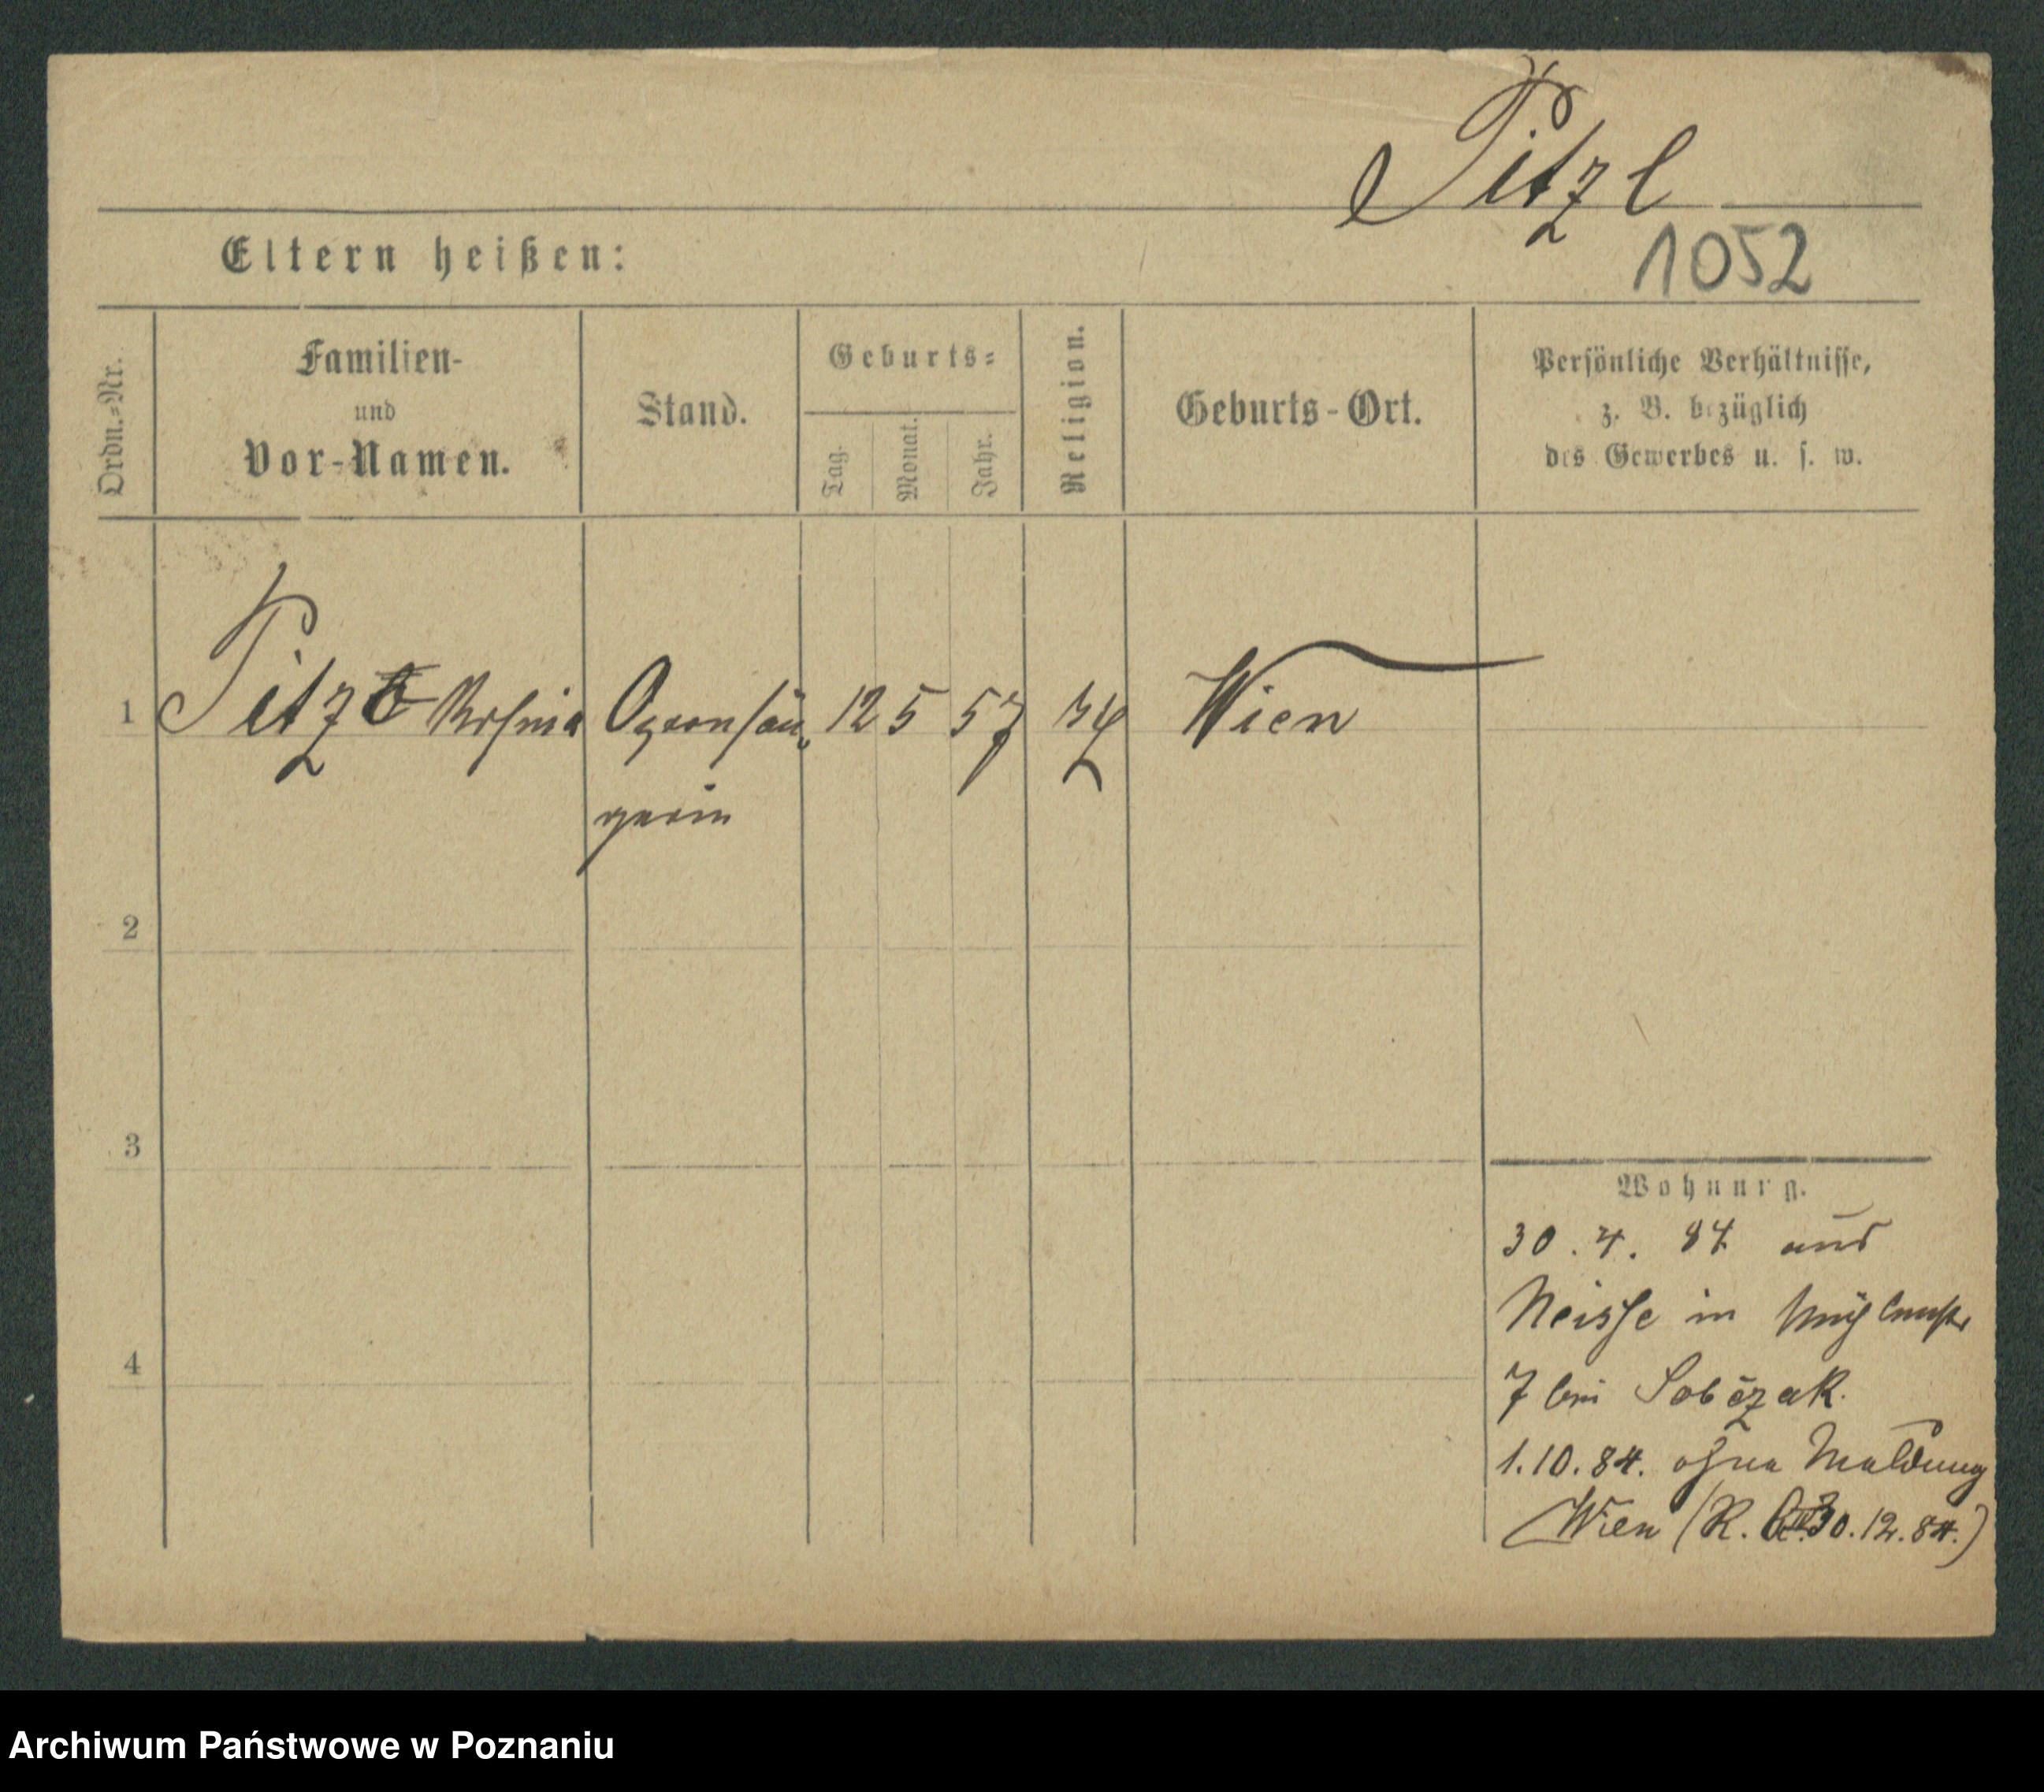 Pitzl
1052
Eltern heißen:
Ordn.-Nr.
Familien-
und
Vor-Namen.
Stand.
Geburts-
Tag.
Monat.
Jahr.
Religion.
Geburts-Ort.
Persönliche Verhältnisse,
z. B. bezüglich
des Gewerbes u. s. w.
1 Pitzl Rosina Opernsän 12 5 57 Wien
gerin
2
3
4
Wohnung.
30. 4. 84 aus
Neisse in
7 bei Sobczak.
1.10.84. ohne Meldung
Wien (R. 30.12.84.)
Archiwum Państwowe w Poznaniu